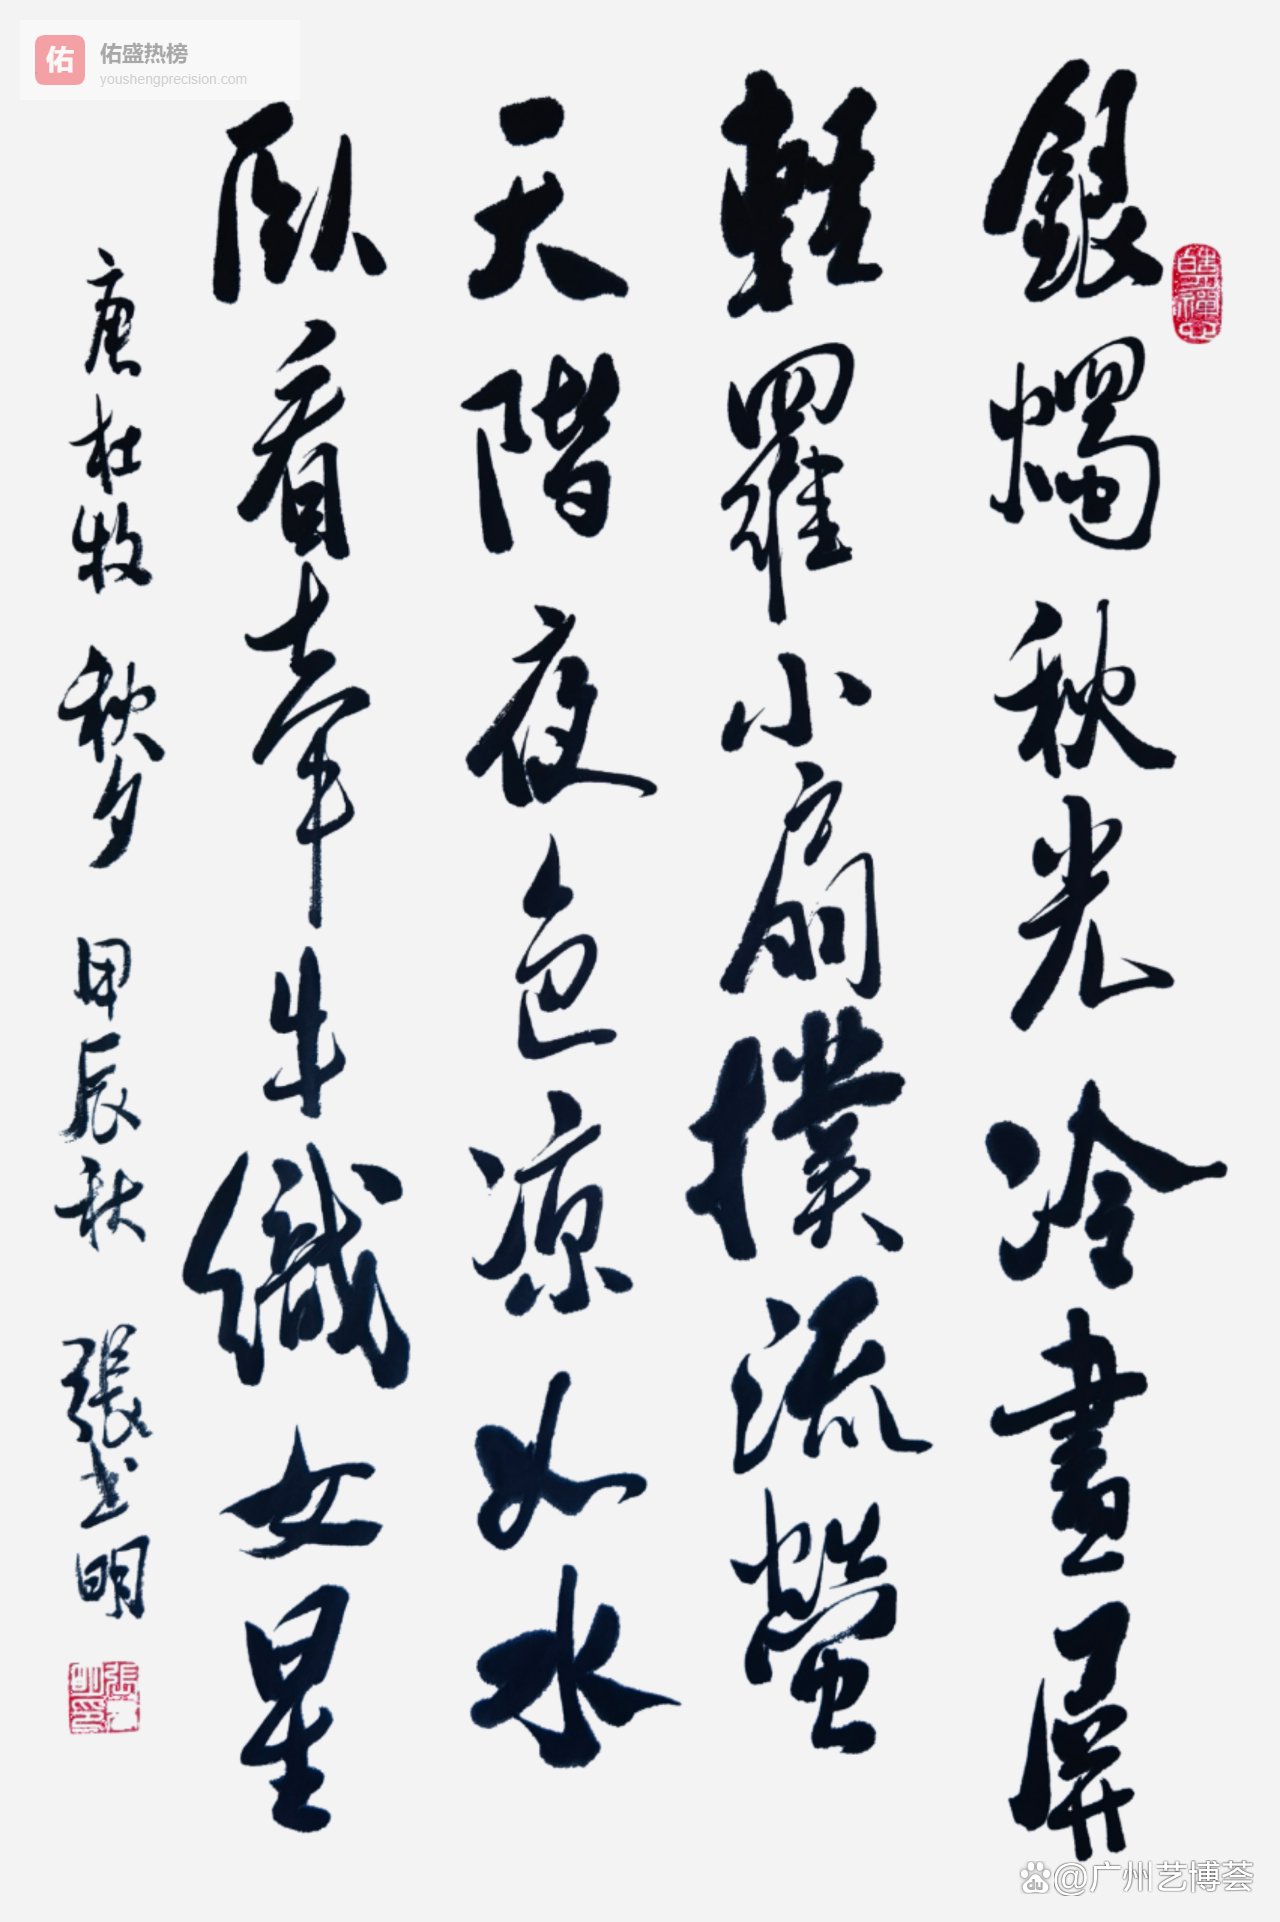 佑
佑盛热榜
youshengprecision.com
銀燭秋光冷畫屏
輕羅小扇撲流螢
天階夜色凉如水
臥看牽牛織女星
唐杜牧 秋夕 甲辰秋 張 明
@广州艺博荟
du